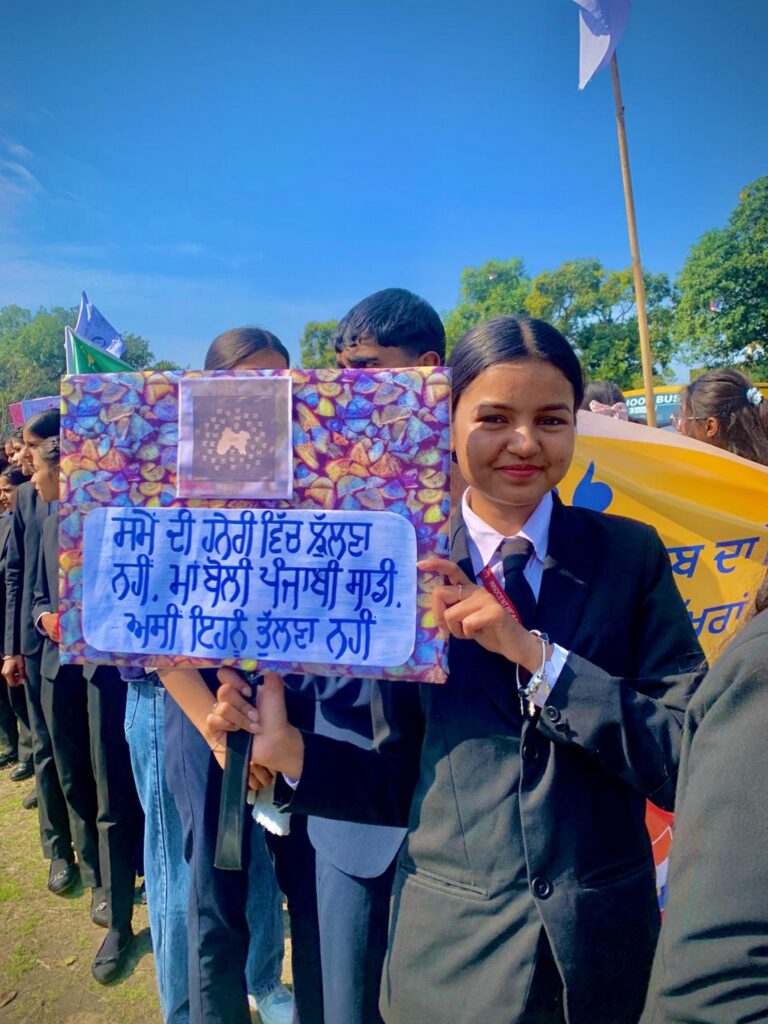 ਸਮੇਂ ਦੀ ਹਨੇਰੀ ਵਿੱਚ ਝੂੱਲਣਾ
ਨਹੀਂ. ਮਾਂ ਬੋਲੀ ਪੰਜਾਬੀ ਸਾਡੀ.
ਅਸੀ ਇਹਨੂੰ ਭੁੱਲਣਾ ਨਹੀਂ
BUS
ਬ ਦਾ